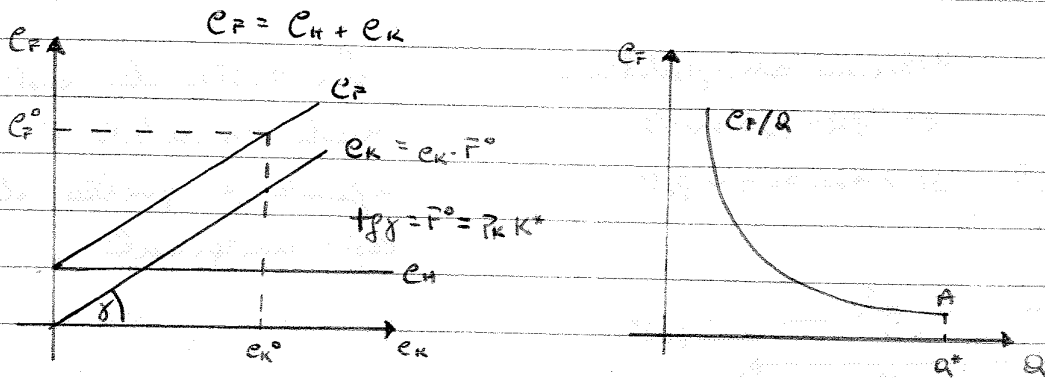 C_F = C_H + C_K
C_F
C_F
C_F°
C_K = e_K · F̄°
tgγ = F̄° = P_K K*
C_H
γ
e_K°
e_K
C_F
C_F/Q
A
Q*
Q